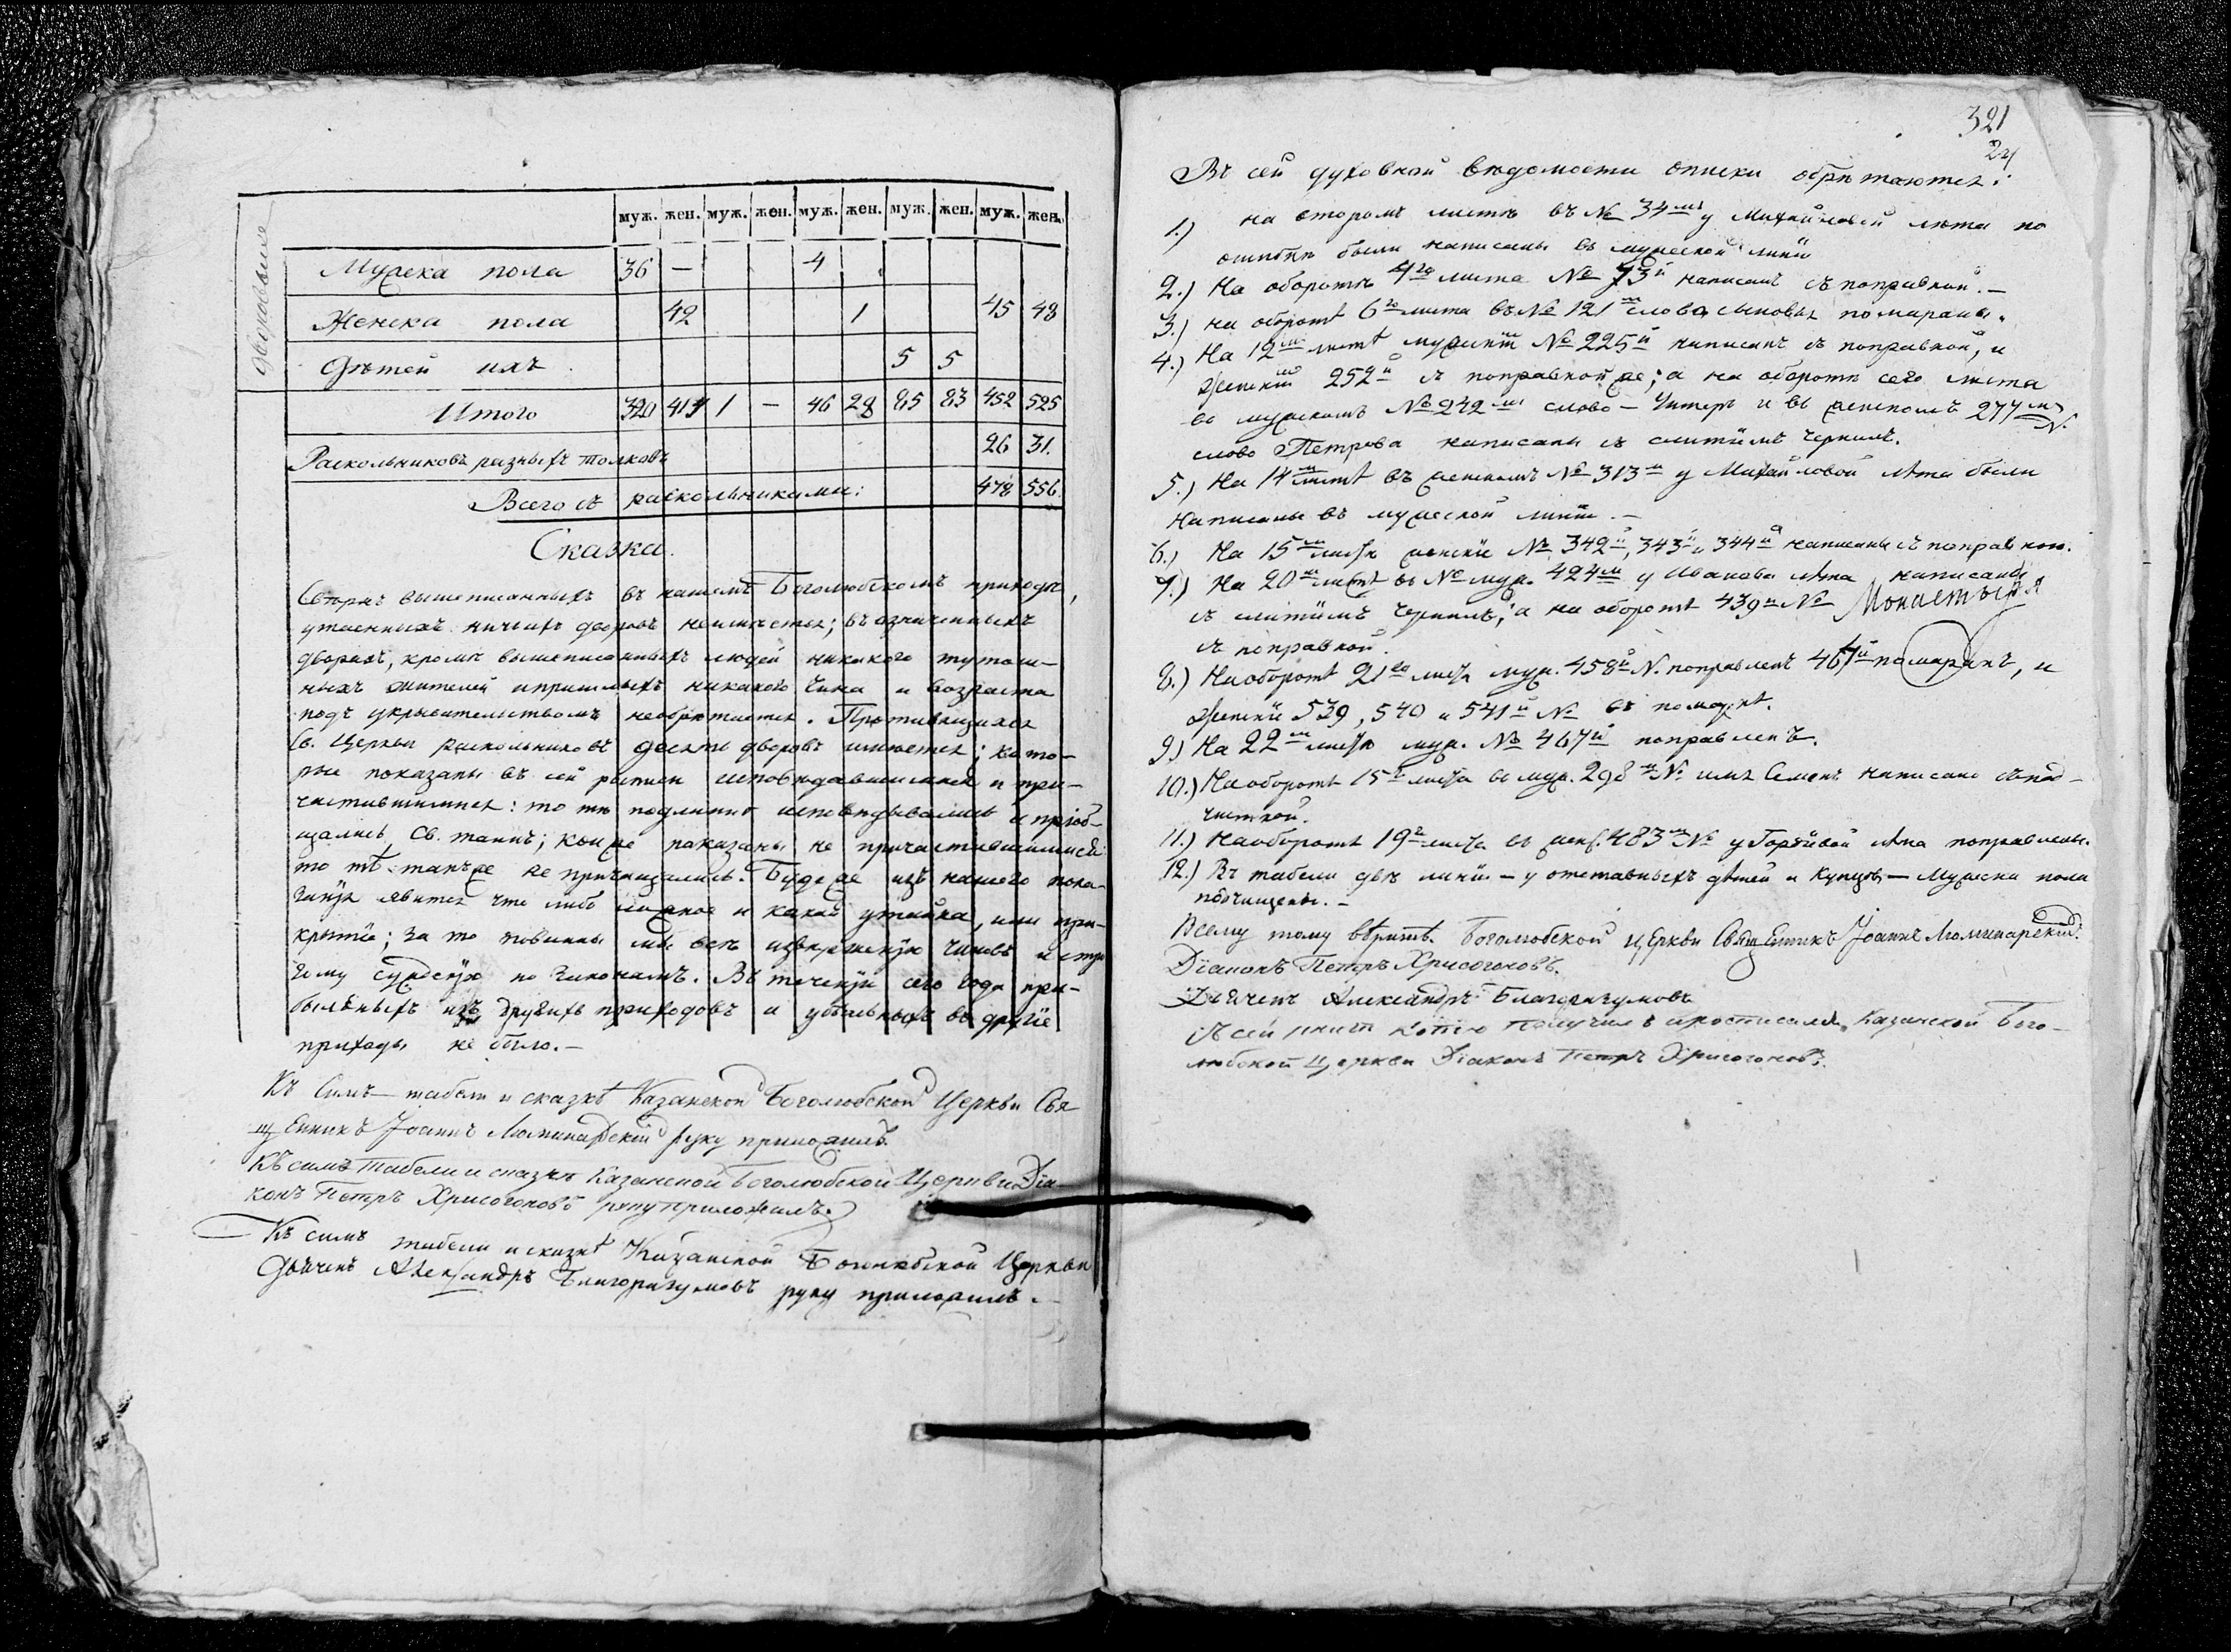 муж. жен. муж. жен. муж. жен. муж. жен. муж. жен.
дворовыхъ
Мужеска пола 36 — 4
Женска пола 42 1 45 48
Дѣтей ихъ 5 5
Итого 320 414 1 — 46 28 85 83 452 525
Раскольниковъ разныхъ толковъ 26 31.
Всего съ раскольниками: 478 556
Сказка.
Сверхъ вышеписанныхъ въ нашемъ Боголюбскомъ приходѣ,
утаенныхъ ничьихъ дворовъ неимѣется; въ означенныхъ
дворахъ, кромѣ вышеписанныхъ людей никакого тутош-
ныхъ жителей и пришлыхъ никакого чина и возраста
подъ укрывательствомъ необрѣтается. Противящихся
Св. Церкви раскольниковъ десять дворовъ имѣется; кото-
рые показаны въ сей росписи исповѣдавшимися и при-
частившимися: то тѣ подлинно исповѣдывались и пріоб-
щались Св. таинъ; кои же показаны не причастившимися
то тѣ также не причащались. Буде же изъ нашего пока-
занія явится что либо ложное и какая утайка, или при-
крытіе; за то повинны мы всѣ изверженію чиновъ и стро
гому сужденію по законамъ. Въ теченіи сего года при-
былыхъ изъ другихъ приходовъ и убылыхъ въ другіе
приходы не было.—
Къ Симъ табели и сказкѣ Казанской Боголюбской Церкви Свя
щенникъ Іоаннъ Люминарскій руку приложилъ.
Къ симъ табели и сказкѣ Казанской Боголюбской Церкви Діа
конъ Петръ Хрисогоновъ руку приложилъ.
Къ симъ табели и сказкѣ Казанской Боголюбской Церкви
Дьячекъ Александръ Благоразумовъ руку приложилъ.—
321
24
Въ сей духовной вѣдомости описки обрѣтаются:
1.) на второмъ листѣ въ № 34мъ у Михайловой лѣта по
ошибкѣ были написаны въ мужеской линіи
2.) На оборотѣ 4го листа № 73й написанъ съ поправкой.—
3.) на оборотѣ 6го листа въ № 121м слова сыновья помараны.
4.) На 12м листѣ мужскій № 225й написанъ съ поправкой, и
женскій 252й съ поправкой же; а на оборотѣ сего листа
въ мужскомъ № 242мъ слово — и въ женскомъ 277мъ №
слово Петрова написаны съ слитіемъ чернилъ.
5.) На 14м листѣ въ женскомъ № 313м у Михайловой лѣта были
написаны въ мужеской линіи.—
6.) На 15м листѣ женскіе № 342й, 343й и 344й написаны съ поправкою.
7.) На 20м листѣ въ № муж. 424м у Иванова лѣта написаны
съ слитіемъ чернилъ; а на оборотѣ 439й № Монастыря
съ поправкой.
8.) На оборотѣ 21го листа муж. 458й №. поправленъ 467й помаранъ, и
женскіе 539, 540 и 541й № въ помаркѣ.
9.) На 22м листѣ муж. № 467й поправленъ.
10.) На оборотѣ 15го листа въ муж. 298м № имя Семенъ написано съ под-
чисткой.
11.) На оборотѣ 19го листа въ женс. 483м № у лѣта поправлены.
12.) Въ табели двѣ линіи — у отставныхъ дѣтей и купцовъ — Мужеска пола
подчищены.—
Всему тому вѣрить. Боголюбской Церкви Священникъ Іоаннъ Люминарскій.
Діаконъ Петръ Хрисогоновъ.
Дьячекъ Александръ Благоразумовъ
Съ сей книги копію получилъ и росписался Казанской Бого-
любской Церкви Діаконъ Петръ Хрисогоновъ.